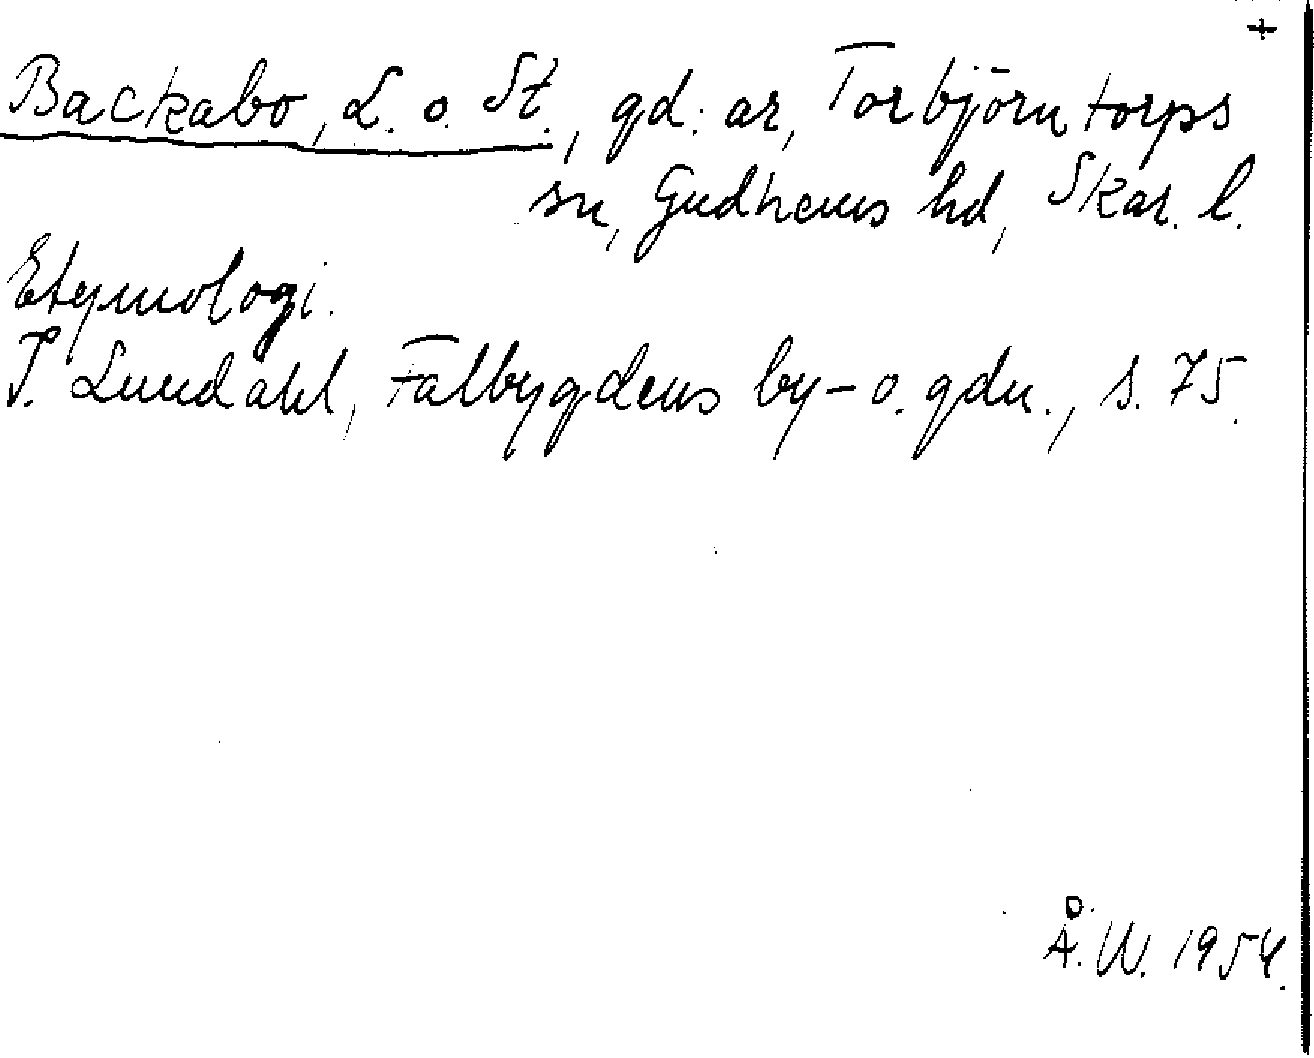 +
Backabo, L. o. St., gd:ar, Torbjörntorps
sn, Gudhems hd, Skar. l.
Etymologi.
I. Lundahl, Falbygdens by- o. gdn., s. 75.
Å. W. 1954.